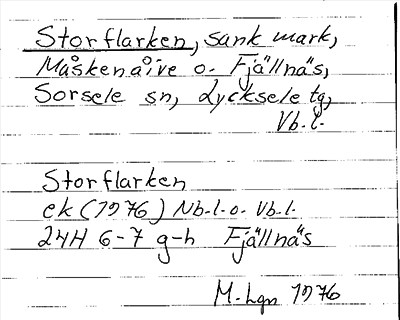 Storflarken, sank mark,
Måskenåive o. Fjällnäs,
Sorsele sn, Lycksele tg,
Vb.l.
Storflarken
ek (1976) Nb.l.o. Vb.l.
24H 6-7 g-h Fjällnäs
M. Lgn 1976